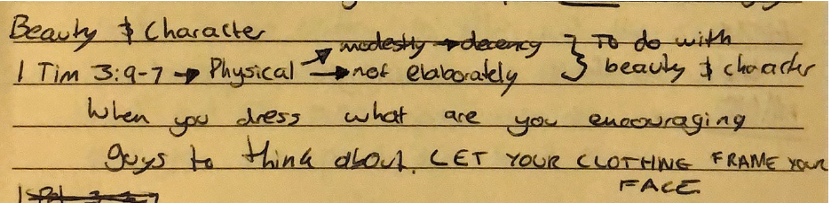 Beauty & Character
modestly → decency } To do with
1 Tim 3:9-7 → Physical → not elaborately beauty & character
When you dress what are you encouraging
guys to think about. LET YOUR CLOTHING FRAME YOUR
FACE